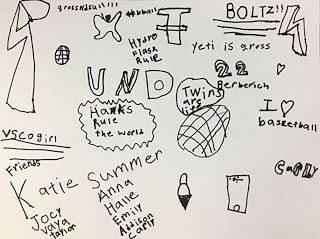 #bball
BOLTZ!!
Hydro
Flask
Rule
Yeti is gross
UND
22
Berberich
Twins
are
life
Hawks
Rule
the world
I
basketball
VSCO girl
Friends
Katie
Summer
Anna
Halle
Emily
Addison
Carly
Jocy
Carly